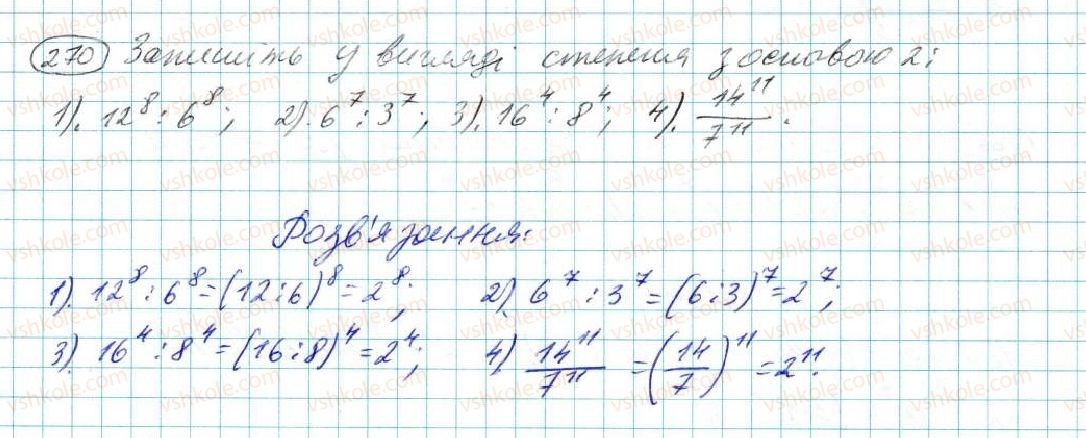 270 Запишіть у вигляді степеня з основою 2:
1). 12⁸ : 6⁸; 2). 6⁷ : 3⁷; 3). 16⁴ : 8⁴; 4). 14¹¹/7¹¹.
Розв'язання:
1). 12⁸ : 6⁸ = (12 : 6)⁸ = 2⁸; 2). 6⁷ : 3⁷ = (6 : 3)⁷ = 2⁷;
3). 16⁴ : 8⁴ = (16 : 8)⁴ = 2⁴; 4) 14¹¹/7¹¹ = (14/7)¹¹ = 2¹¹.